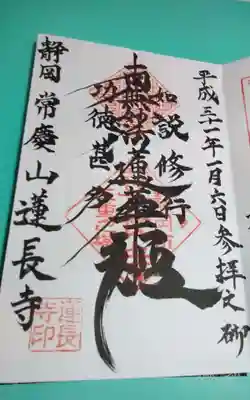 平成三十一年一月六日参拝之御
如説修行
南無妙法蓮華経
功徳甚多
静岡 常慶山蓮長寺
蓮長
寺印